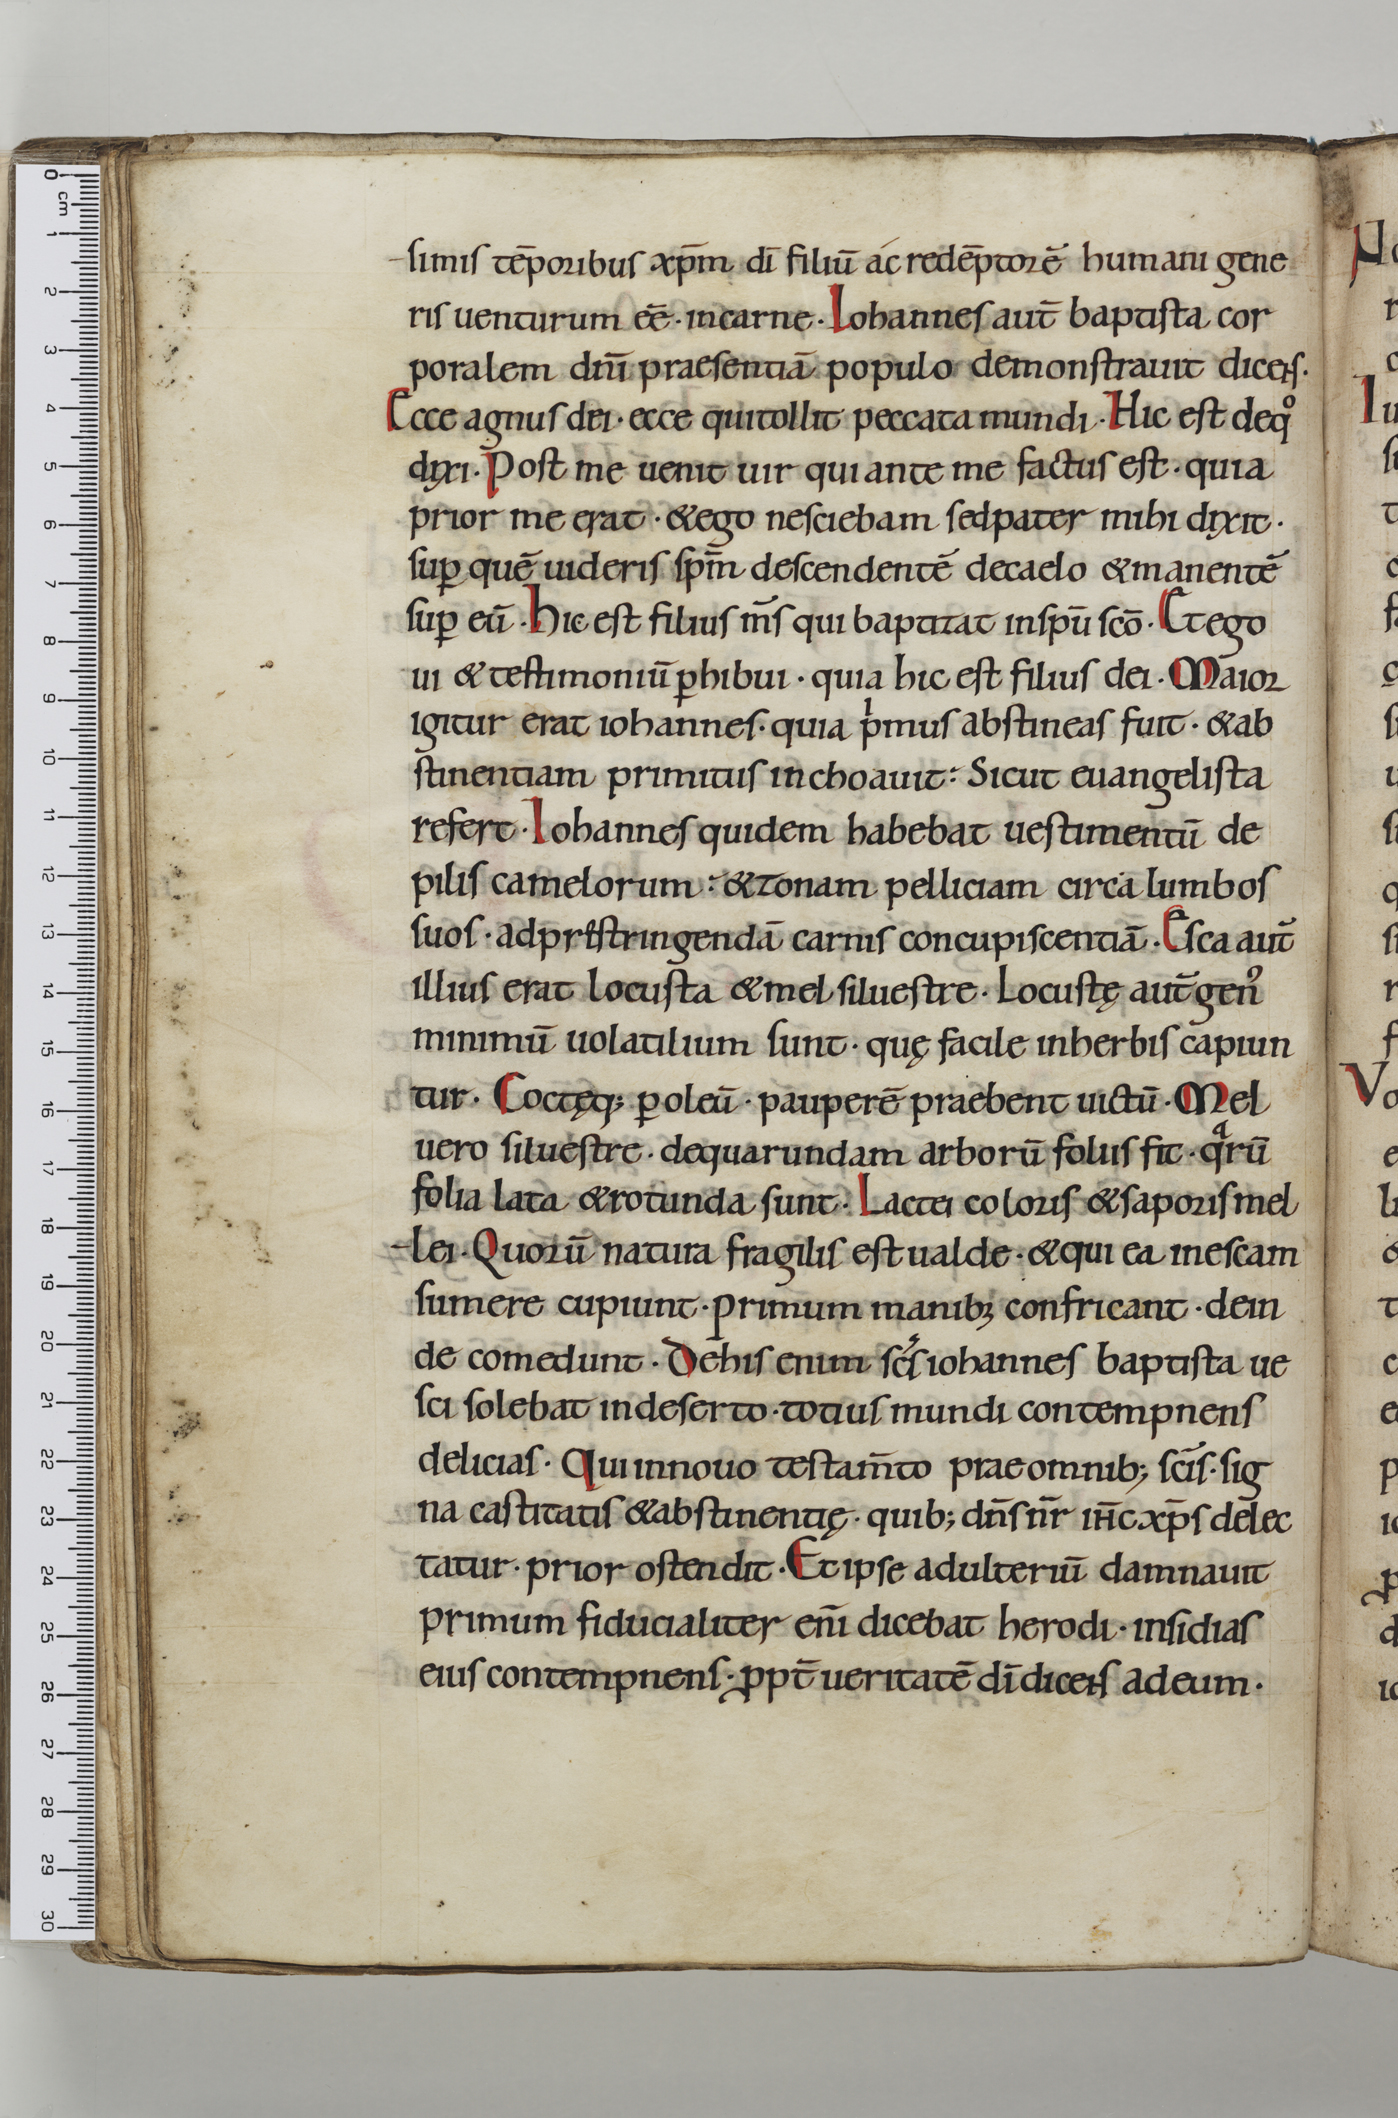 simis tēporibus xp̄m dī filiū ác redēptorē humani gene
ris uenturum eē · incarne · Iohannes aut̄ baptista cor
poralem dn̄i praesentiā populo demonstrauit dicens ·
Ecce agnus dei · ecce qui tollit peccata mundi · Hic est de qͦ
dixi · Post me uenit uir qui ante me factus est · quia
prior me erat · & ego nesciebam sed pater mihi dixit ·
suꝑ quē uideris sp̄m descendentē de caelo & manentē
suꝑ eū · hic est filius m̄s qui baptizat in sp̄u scō · Et ego
ui & testimoniū ꝑhibui · quia hic est filius dei · Maior
igitur erat iohannes · quia pͥmus abstineas fuit · & ab
stinentiam primitus inchoauit : Sicut euangelista
refert · Iohannes quidem habebat uestimentū de
pilis camelorum : & zonam pelliciam circa lumbos
suos · ad prestringendā carnis concupiscentiā · Esca aut̄
illius erat locusta & mel siluestre · Locustę aut̄ gen᾽
minimū uolatilium sunt · quę facile in herbis capiun
tur · Coctęq; ꝑ oleū · pauperē praebent uictū · Mel
uero siluestre · de quarundam arborū foliis fit · qᵃrū
folia lata & rotunda sunt · Lactei coloris & saporis mel
lei · Quorū natura fragilis est ualde · & qui ea in escam
sumere cupiunt · primum manibꝫ confricant · dein
de comedunt · De his enim scs̄ iohannes baptista ue
sci solebat in deserto · totius mundi contempnens
delicias · Qui in nouo testam̄to prae omnib; scīs · sig
na castitatis & abstinentię · quib; dn̄s nr̄ ih̄c xp̄s delec
tatur · prior ostendit · Et ipse adulteriū damnauit
primum fiducialiter enī dicebat herodi · insidias
eius contempnens · ꝓpt̄ ueritatē dī dicens ad eum ·
0
cm
1
2
3
4
5
6
7
8
9
10
11
12
13
14
15
16
17
18
19
20
21
22
23
24
25
26
27
28
29
30